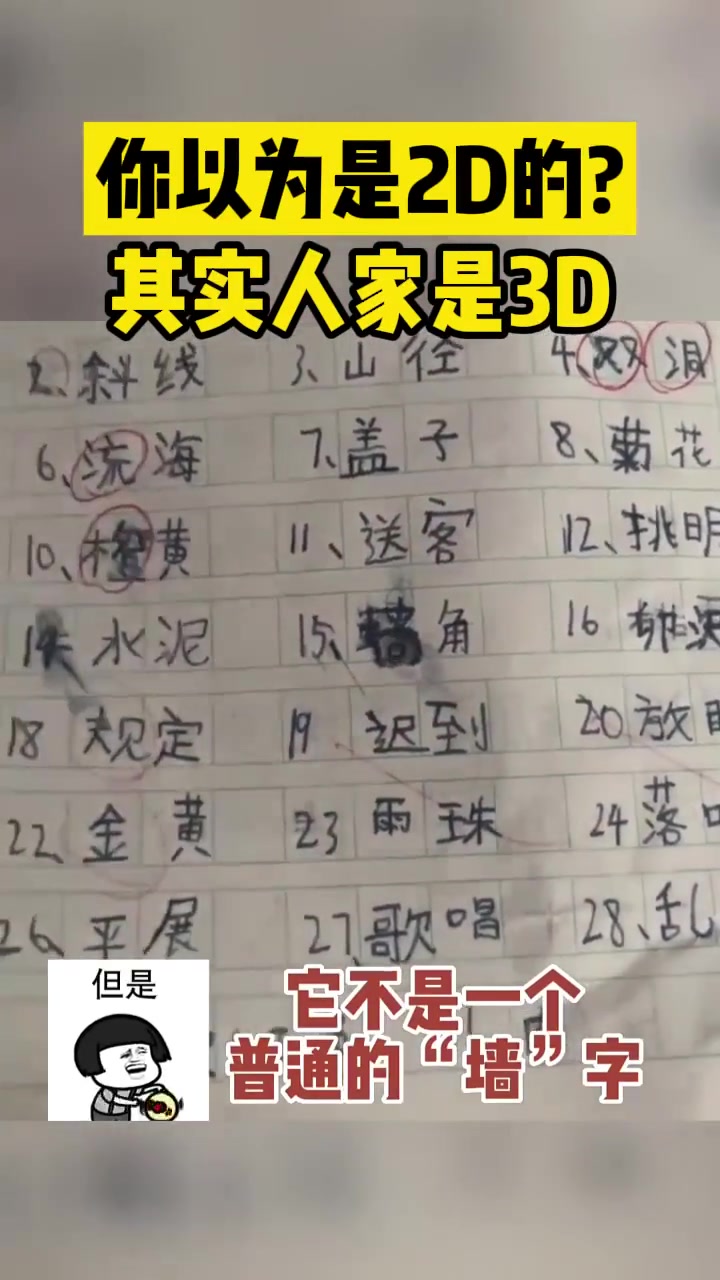 你以为是2D的?
其实人家是3D
2、斜线 3、山径 4、双泪
6、流海 7、盖子 8、菊花
10、橙黄 11、送客 12、挑明
14 水泥 15、墙角 16
18 规定 19 迟到 20 放
22、金黄 23 雨珠 24 落
26、平展 27、歌唱 28、乱
但是
它不是一个
普通的“墙”字